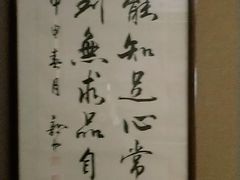 能知足心常
到無求品自
甲申春月